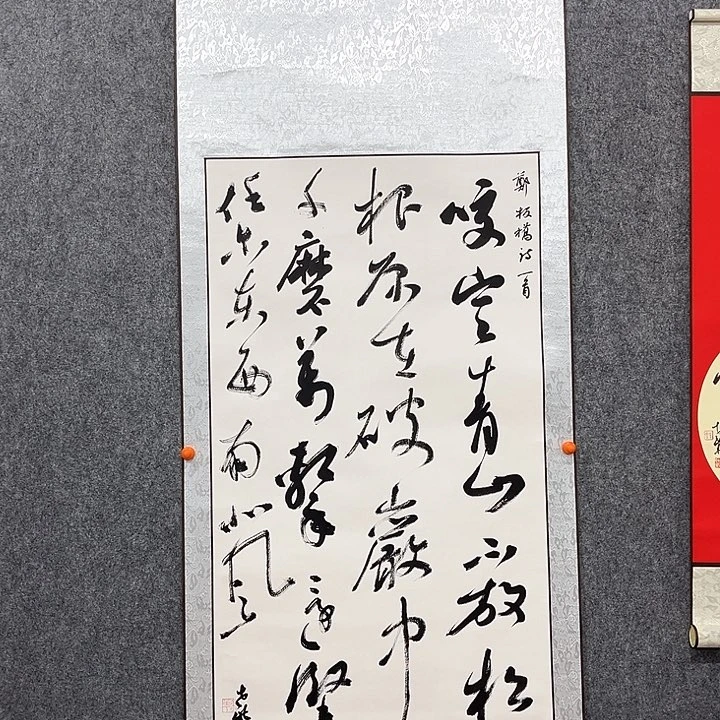 鄭板橋詩一首
咬定青山不放松
根原在破巖中
千磨萬擊還堅
任尔東西南北風